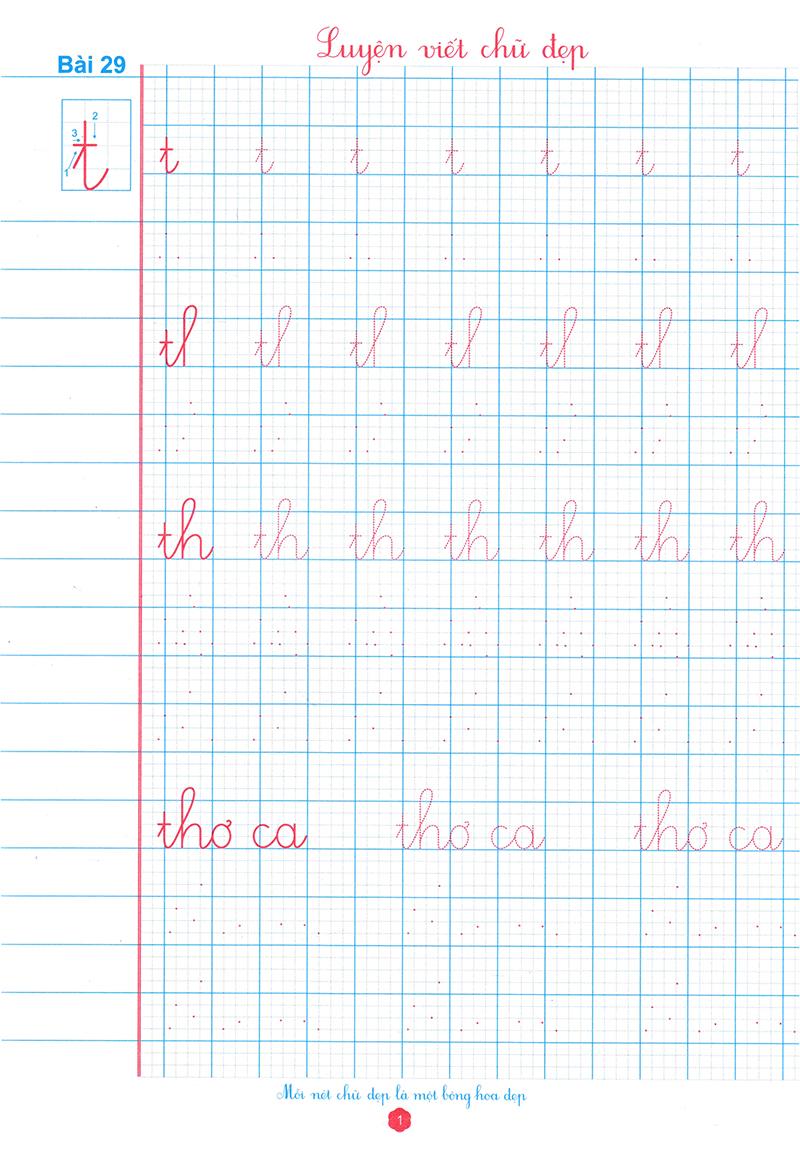 Luyện viết chữ đẹp
Bài 29
1 2 3 t
t t t t t t t
tl tl tl tl tl tl tl
th th th th th th th
thơ ca thơ ca thơ ca
Mỗi nét chữ đẹp là một bông hoa đẹp
1